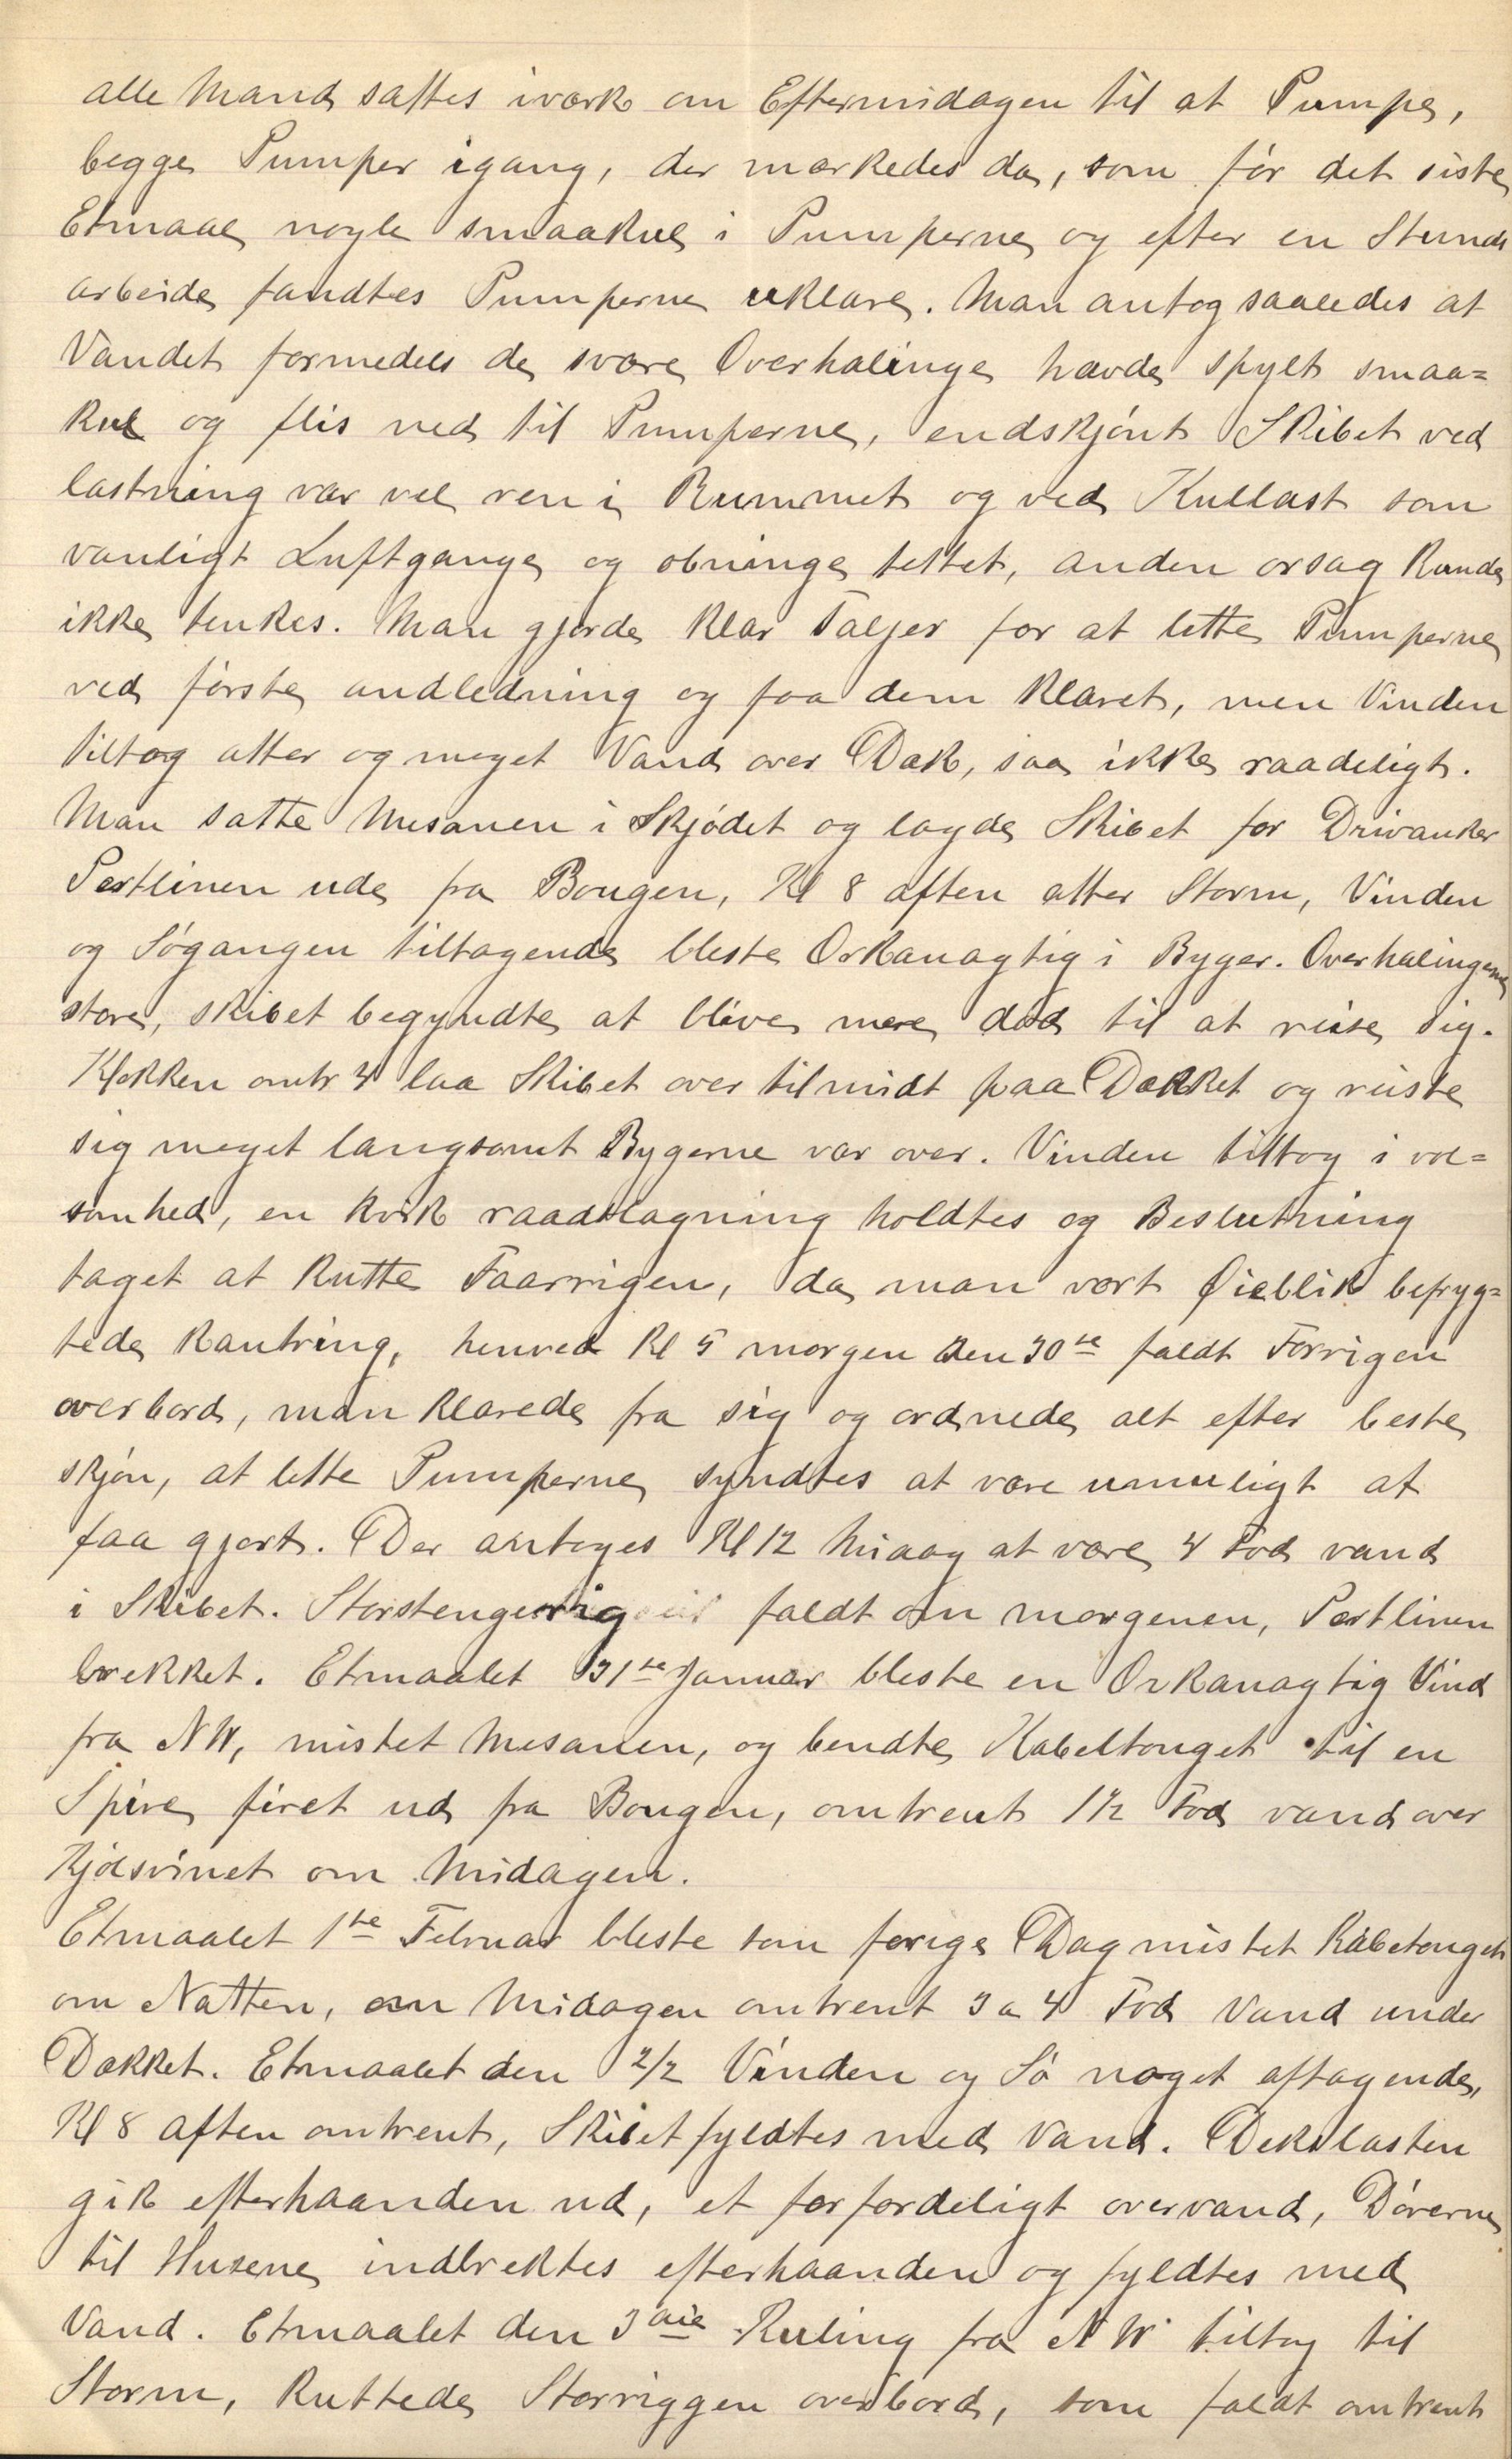 alle Mand sattes iværk om Eftermidagen til at Pumpe,
begge Pumper igang, der mærkedes da, som før det siste
Etmaal nogle smaakul i Pumperne og efter en Stunds
arbeide fandtes Pumperne uklare. Man antog saaledes at
Vandet formedels de svære Overhalinge havde spylt smaa=
kul og flis ned til Pumperne, endskjönt Skibet ved
lastning var vel ren i Rummet og ved Kullast som
vanligt Luftgange og obninge tettet, anden orsag kunde
ikke tenkes. Man gjorde klar Taljer for at lette Pumperne
ved förste andledning og faa dem klaret, men Vinden
tiltog atter og meget Vand over Dæk, saa ikke raadeligt.
Man satte Mesanen i Skjödet og lagde Skibet for Drivanker
Pertlinen ude fra Bougen, Kl 8 aften atter Storm, Vinden
og Sögangen tiltagende bleste Orkanagtig i Byger. Overhalingerne
store, skibet begyndte at blive mere död til at reise sig.
Klokken omtr 4 laa Skibet over til midt paa Dækket og reiste
sig meget langsomt Bygerne var over. Vinden tiltog i vol=
somhed, en kvik raadslagning holdtes og Beslutning
taget at kutte Faarrigen, da man vært Øieblik befryg=
tede kantring, henved Kl 5 morgen den 30te faldt Forrigen
overbord, man klarede fra sig og ordnede alt efter beste
skjön, at lette Pumperne syndtes at være umuligt at
faa gjort. Der antoges Kl 12 Midag at være 4 Fod vand
i Skibet. Storstengerrig faldt om morgenen, Pertlinen
brekket. Etmaalet 31te Januar bleste en Orkanagtig Vind
fra NW, mistet Mesanen, og bendte Kabeltouget til en
Spire firet ud fra Bougen, omtrent 1½ Fod vand over
Kjölsvinet om Midagen.
Etmaalet 1te Februar bleste som forige Dag mistet Kabetouget
om Natten, om Midagen omtrent 3 a 4 Fod Vand under
Dækket. Etmaalet den 2/2 Vinden og Sö noget aftagende,
Kl 8 aften omtrent, Skibet fyldtes med Vand. Dekslasten
gik efterhaanden ud, et forfærdeligt overvand, Dörerne
til Husene indbrektes efterhaanden og fyldtes med
Vand. Etmaalet den 3die Kuling fra NW tiltog til
Storm, kuttede Storriggen overbord, som faldt omtrent